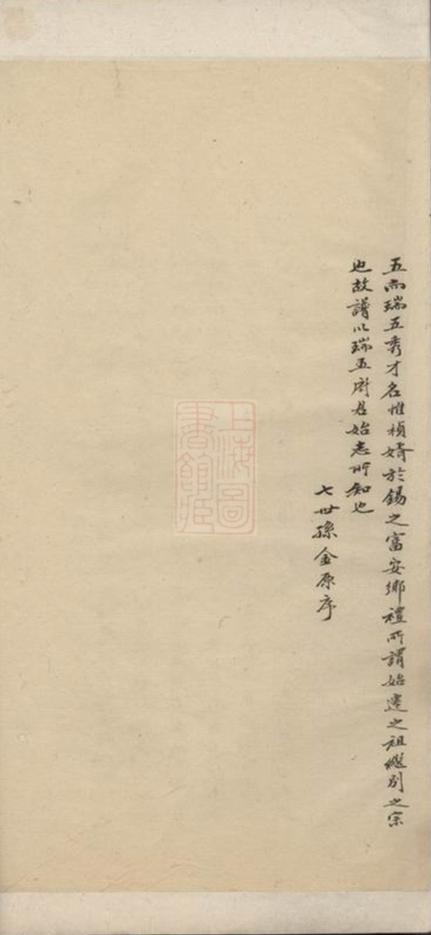 五而瑞五秀才名惟禎婿於錫之富安鄉禮所謂始遷之祖繼別之宗
也故譜以瑞五府君始志所知也
七世孫金原序
上海圖書館藏